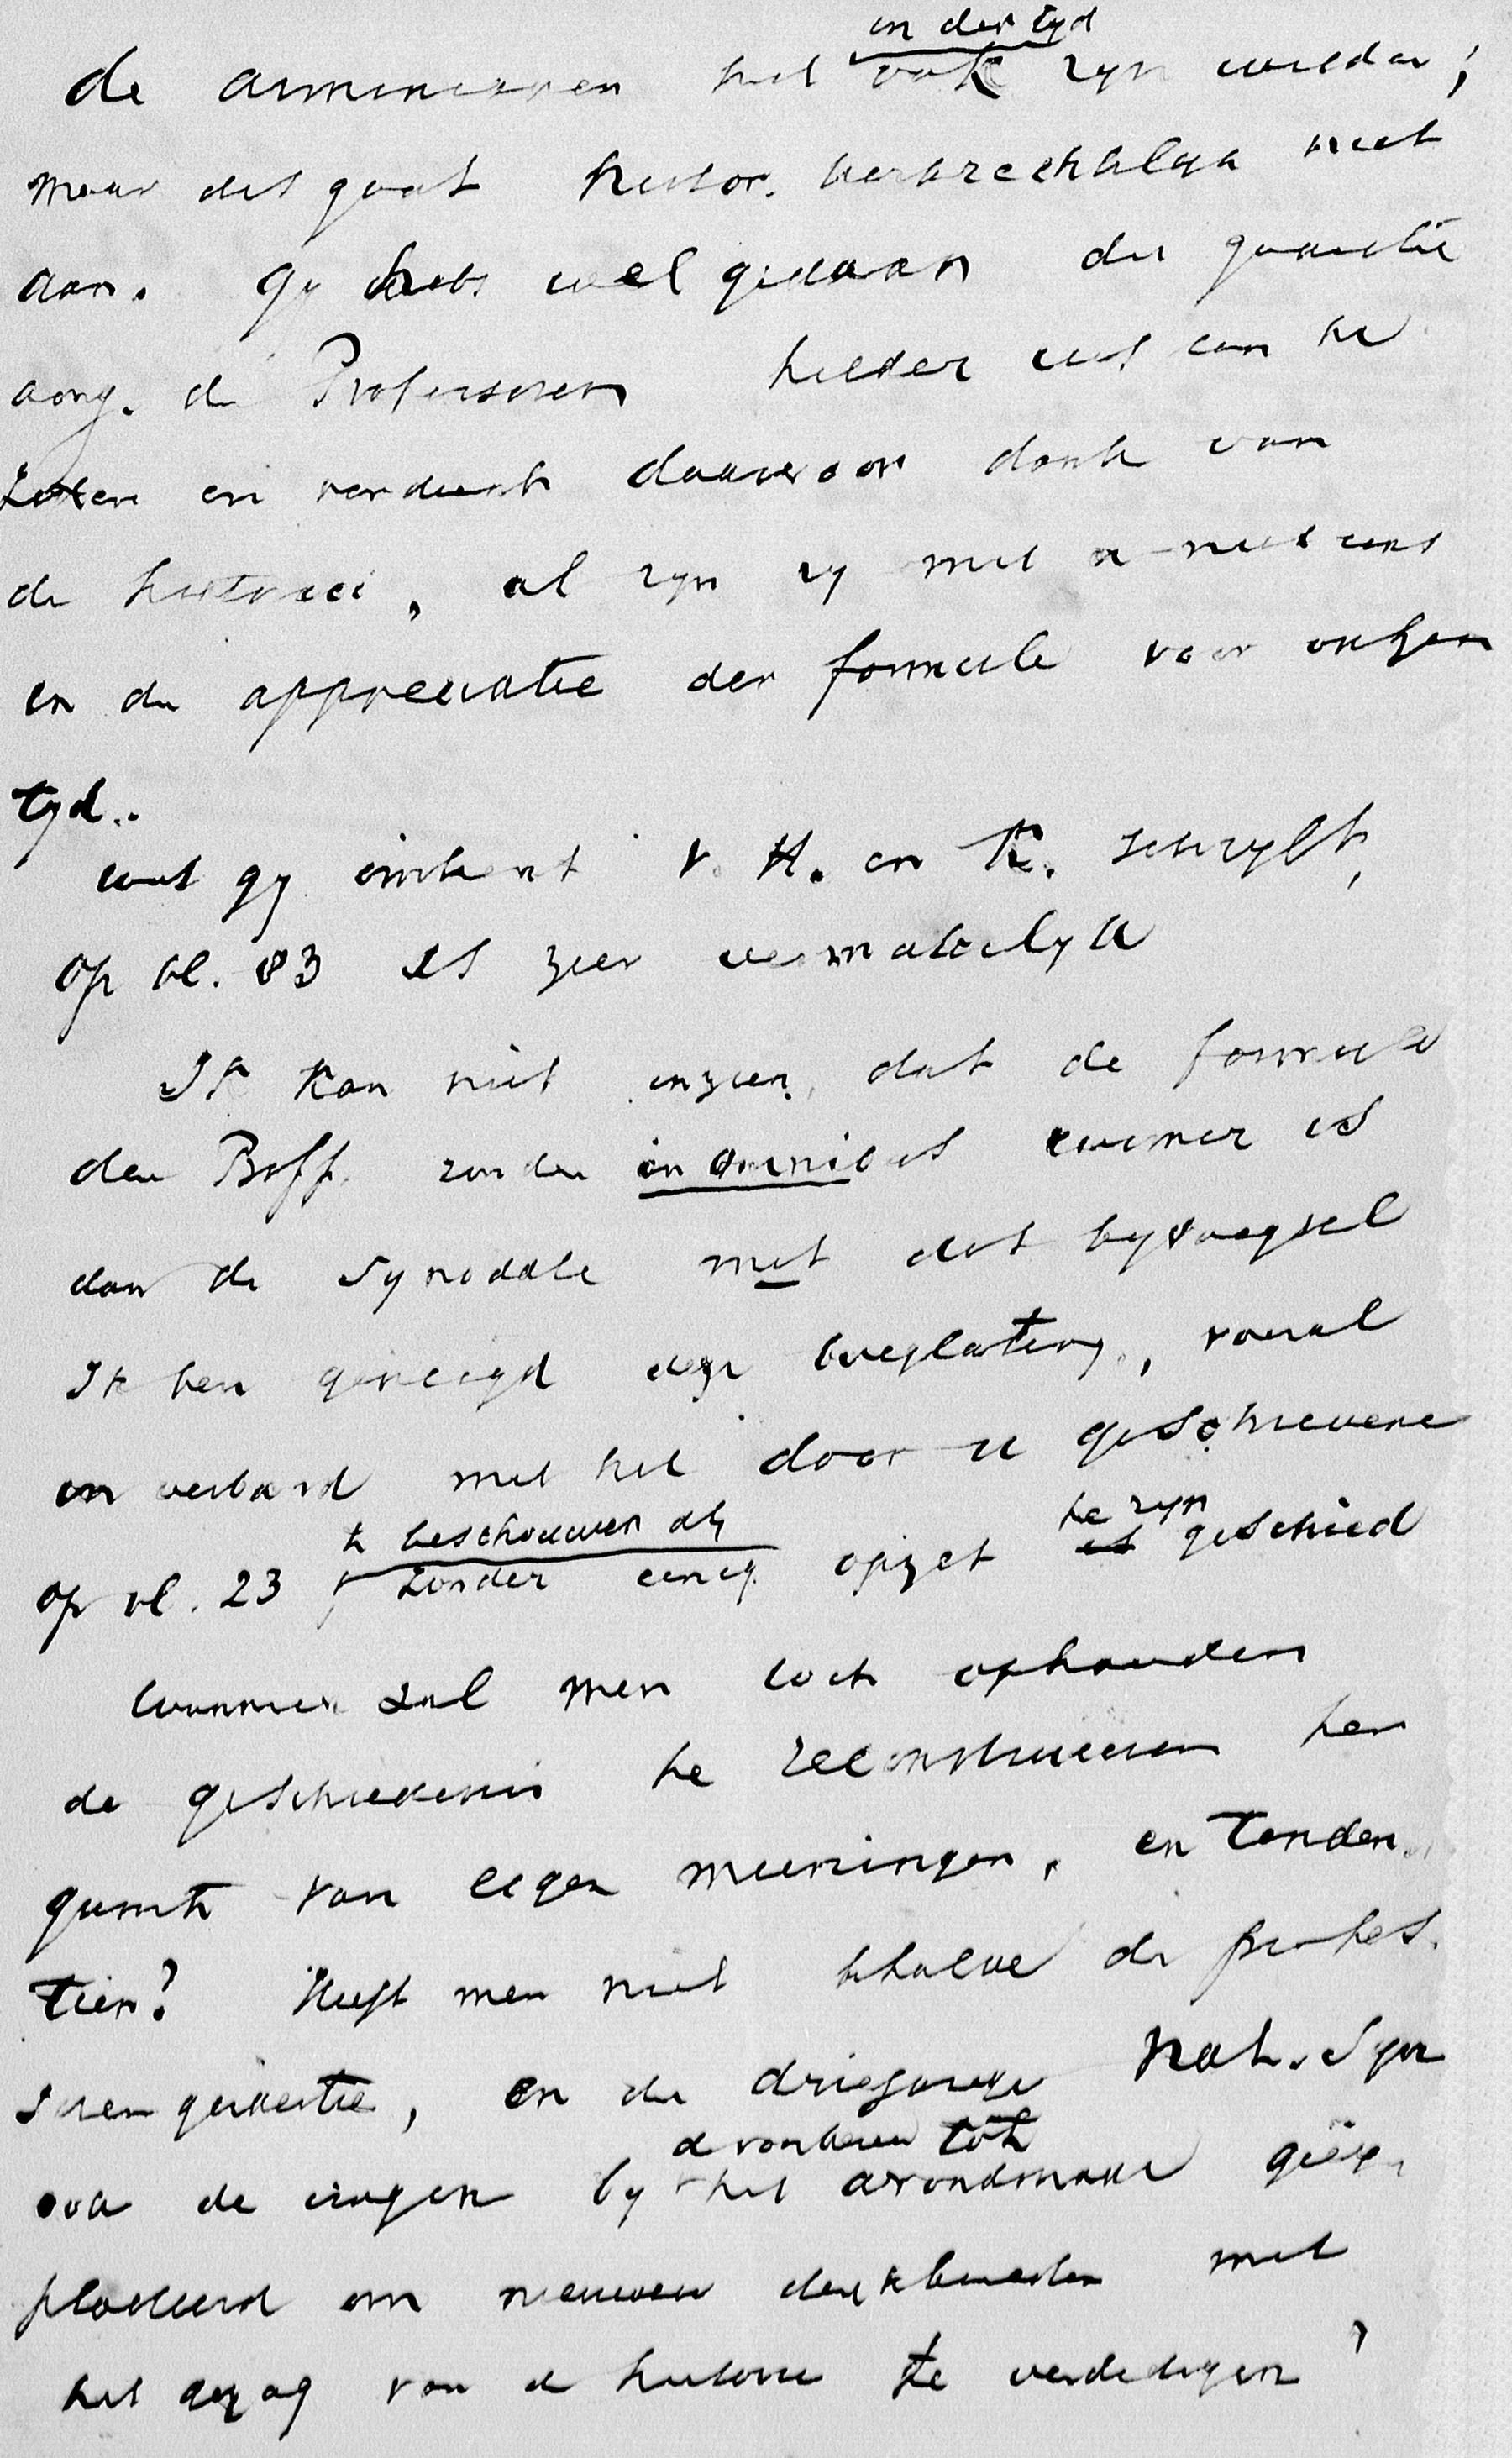 in der tyd
de arminianen het ook zyn wilden;
maar dit gaat histor. werkelyk niet
aan. Gy hebt wel gedaan de quaestie
aang. de Professoren helder uit een te
zetten en verdient daarvoor dank van
de historici, al zyn zy met u niet eens
in de appreciatie der formule voor onzen
tyd.
wat gy omtrent v. H. en K. schryft,
op bl. 83 is zeer vermakelyk
Ik kan niet inzien, dat de formule
der Proff. zonder in omnibus ruimer is
dan de Synodale met dat byvoegsel
Ik ben geneigd deze weglating, vooral
in verband met het door u geschrevene
te beschouwen als te zyn
op bl. 23 zonder eenig opzet is geschied
wanneer zal men toch ophouden
de geschiedenis te reconstrueeren ten
gunste van eigen meeningen, en tenden-
tien? Heeft men niet behalve de profes-
soren quaestie, en de driejarige Nat. Syn
de voorbereid. tot
ook de vragen by het avondmaal geëx-
ploiteerd om nieuwe denkbeelden met
het gezag van de historie te verdedigen?